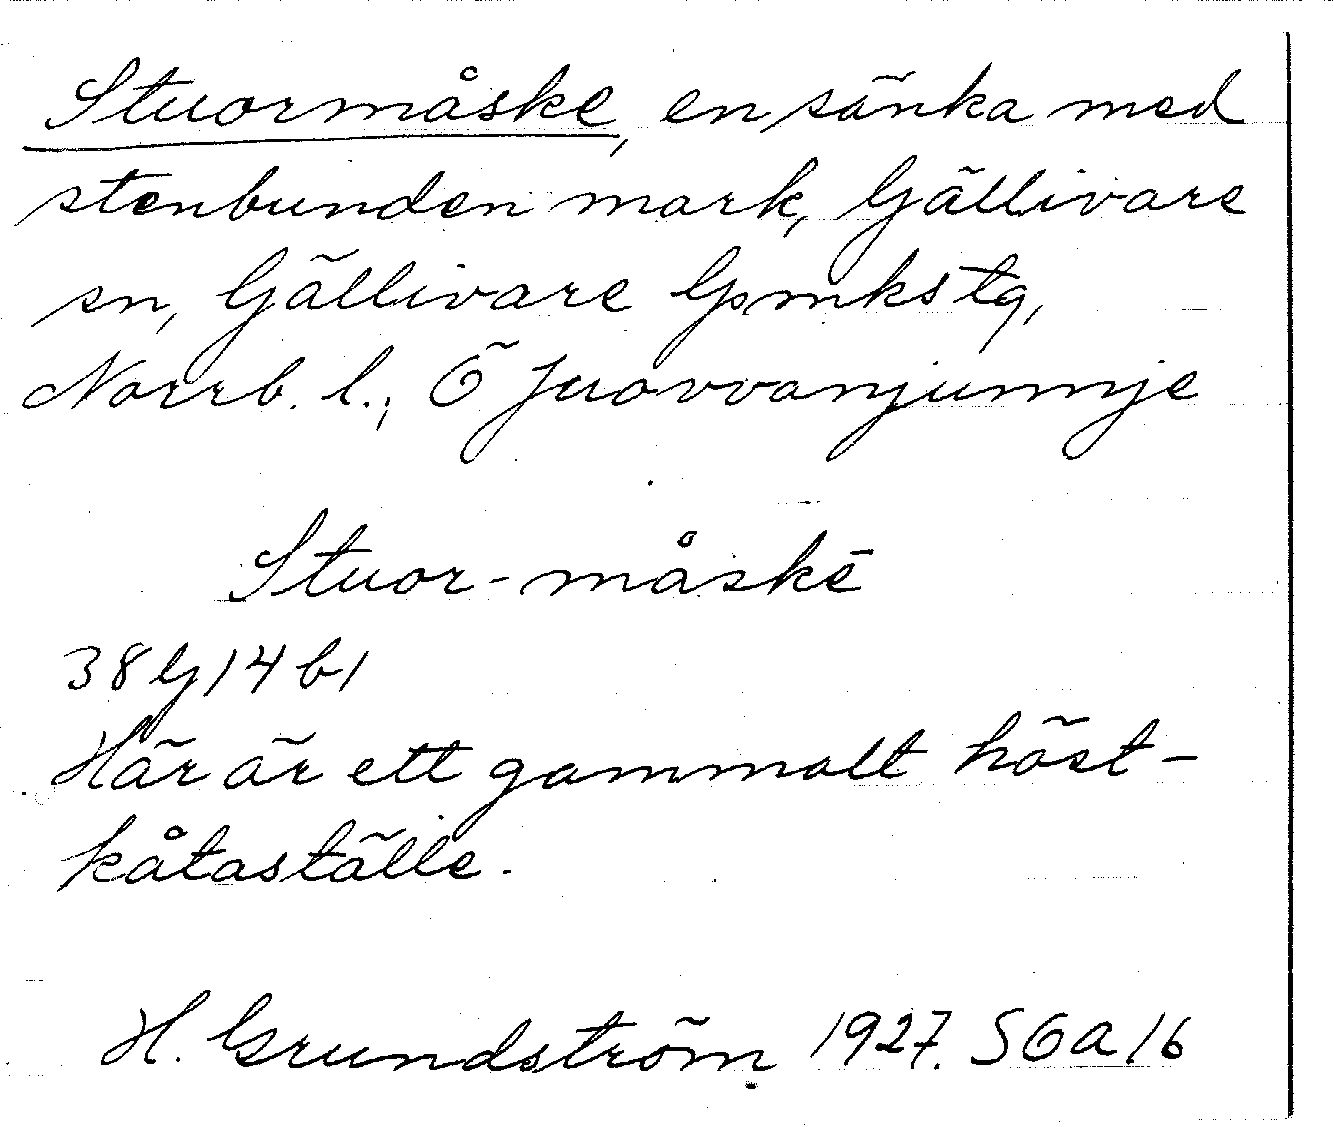 Stuormåske, en sänka med
stenbunden mark, Gällivare
sn, Gällivare Gpmkstg,
Norrb. l.; Ö Juovvanjunnje
Stuor-måskē
38 G 14 b 1
Här är ett gammalt höst-
kåtaställe.
H. Grundström 1927. SOa 16